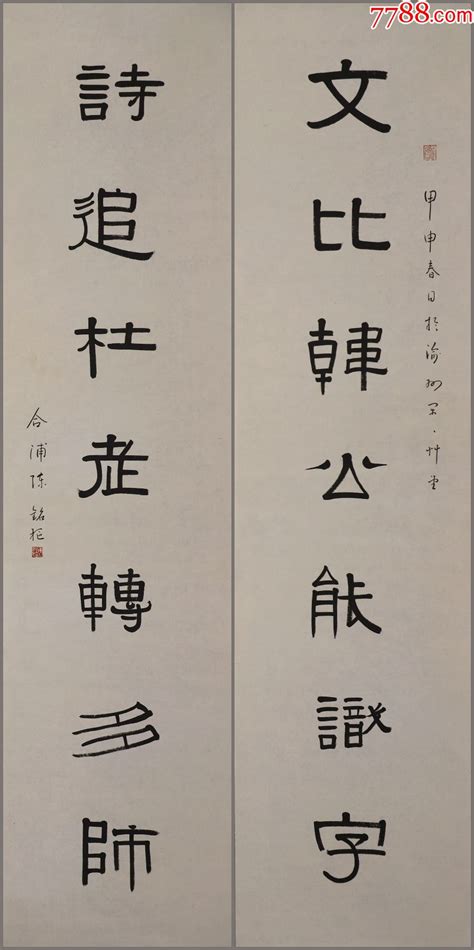 7788.com
甲申春日於渝州艸堂
文比韓公能識字
詩追杜老轉多師
合浦陳銘樞